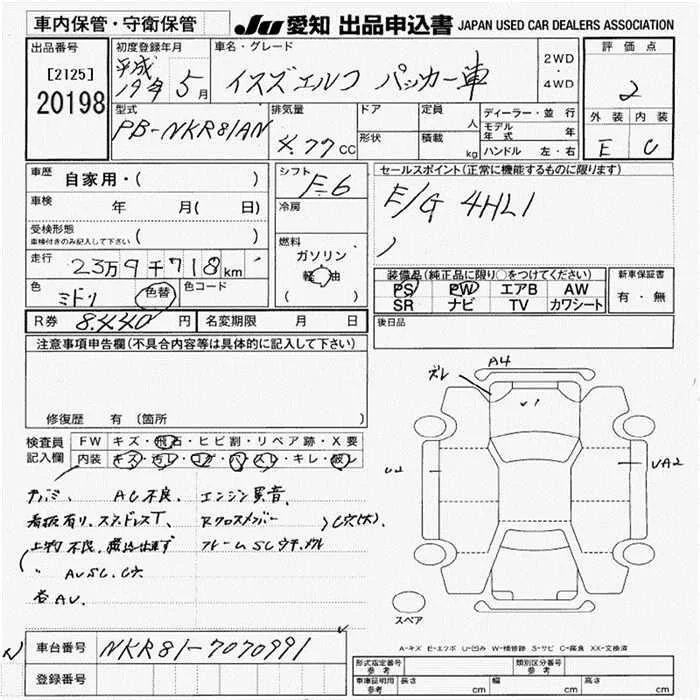 車内保管・守衛保管
JU 愛知 出品申込書 JAPAN USED CAR DEALERS ASSOCIATION
出品番号
[2125]
20198
初度登録年月
平成
19年 5月
車名・グレード
イスズエルフ パッカー車
2WD
・
4WD
評価点
2
外装 内装
E C
型式
PB-NKR81AN
排気量
4.77CC
ドア
形状
定員 人
積載 kg
ディーラー・並行
モデル年式 年
ハンドル 左・右
車歴 自家用・( )
車検 年 月( 日)
受検形態
車検付きのみ記入して下さい ( )
走行 23万9千718km
色 ミドリ 色替 色コード
シフト
F-6
冷房
燃料
ガソリン
軽油
( )
セールスポイント(正常に機能するものに限ります)
E/G 4HL1
装備品(純正品に限り○をつけてください)
PS PW エアB AW
SR ナビ TV カワシート
新車保証書
有・無
R券 8.440円 名変期限 月 日
後日品
注意事項申告欄(不具合内容等は具体的に記入して下さい)
修復歴 有 〔箇所 〕
検査員記入欄
FW キズ・飛石・ヒビ割・リペア跡・X要
内装 キズ・汚レ・コゲ・穴・スレ・キレ・破レ
AC不良、エンジン異音、
看板有り、スタッドレスT、Rクロスメンバー
上物不良、
フレームSC
C穴(大)
〃 AVSC、C穴
各AV、
ズレ
A4
U2
UA2
スペア
A-キズ E-エクボ U-凹み W-補修跡 S-サビ C-腐食 XX-交換済
車台番号 NKR81-7070991
登録番号
形式指定番号 参考
類別区分番号 参考
車庫証明用 参考 長さ cm 幅 cm 高さ cm